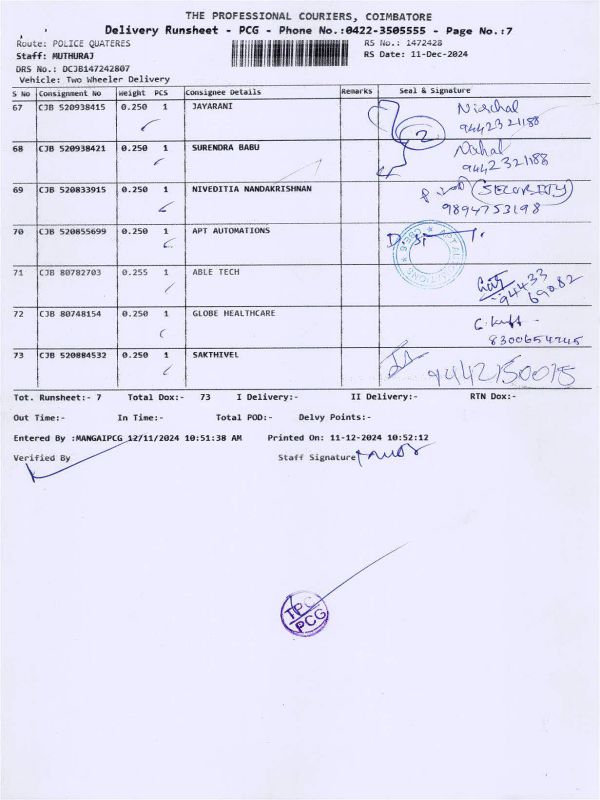 THE PROFESSIONAL COURIERS, COIMBATORE
Delivery Runsheet - PCG - Phone No.:0422-3505555 - Page No.:7
Route: POLICE QUATERES RS No.: 1472428
Staff: MUTHURAJ RS Date: 11-Dec-2024
DRS No.: DCJB147242807
Vehicle: Two Wheeler Delivery
S No Consignment No Weight PCS Consignee Details Remarks Seal & Signature
67 CJB 520938415 0.250 1 JAYARANI
9442321188
2
68 CJB 520938421 0.250 1 SURENDRA BABU
9442321188
69 CJB 520833915 0.250 1 NIVEDITIA NANDAKRISHNAN
SECURITY
9894753198
70 CJB 520855699 0.250 1 APT AUTOMATIONS
71 CJB 80782703 0.255 1 ABLE TECH
94433
69082
72 CJB 80748154 0.250 1 GLOBE HEALTHCARE
8300654745
73 CJB 520884532 0.250 1 SAKTHIVEL
9442150075
Tot. Runsheet:- 7 Total Dox:- 73 I Delivery:- II Delivery:- RTN Dox:-
Out Time:- In Time:- Total POD:- Delvy Points:-
Entered By :MANGAIPCG 12/11/2024 10:51:38 AM Printed On: 11-12-2024 10:52:12
Verified By Staff Signature
TPC
PCG